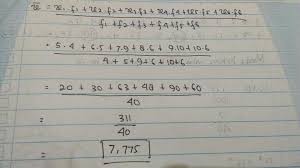 x̄ = x1.f1 + x2.f2 + x3.f3 + x4.f4 + x5.f5 + x6.f6
f1 + f2 + f3 + f4 + f5 + f6
= 5.4 + 6.5 + 7.9 + 8.6 + 9.10 + 10.6
4 + 5 + 9 + 6 + 10 + 6
= 20 + 30 + 63 + 48 + 90 + 60
40
= 311
40
= 7,775